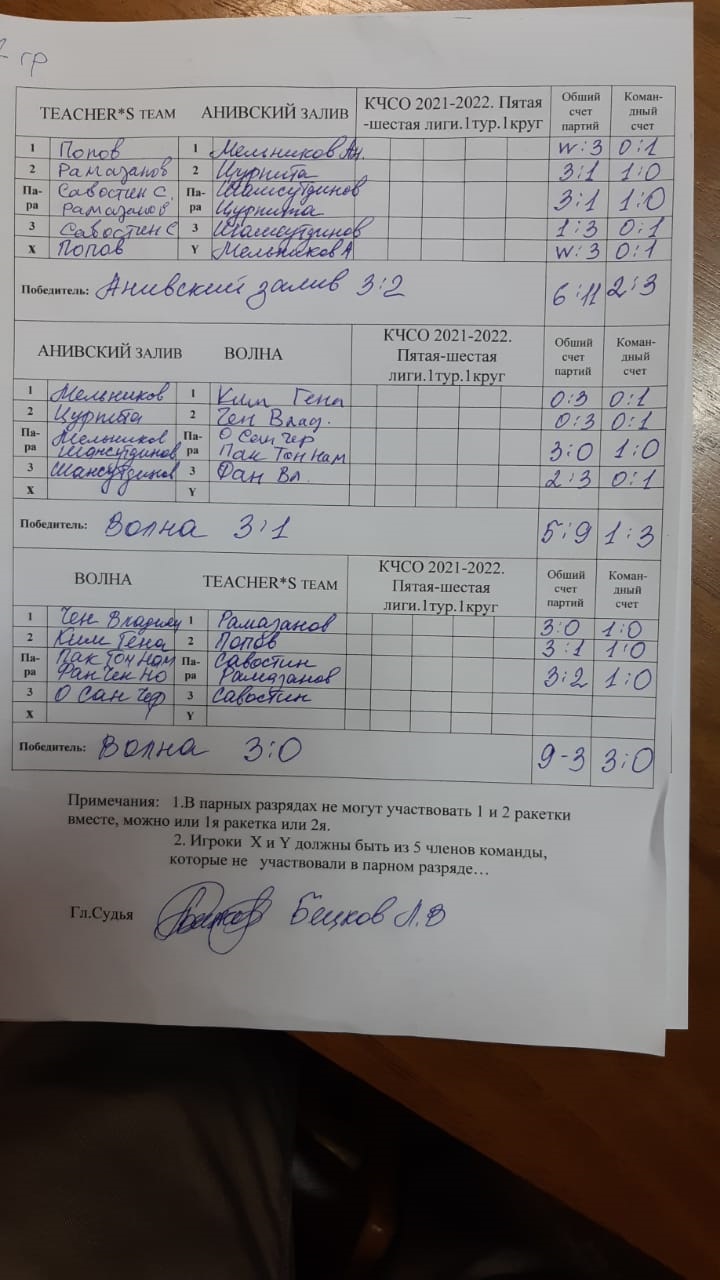 гр
TEACHER*S TEAM АНИВСКИЙ ЗАЛИВ КЧСО 2021-2022. Пятая -шестая лиги.1тур.1круг Общий счет партий Коман-дный счет
1 Попов 1 Мельников Ан. w:3 0:1
2 Рамазанов 2 Цурпита 3:1 1:0
Па-ра Савостин С. Па-ра Шамсутдинов 3:1 1:0
Рамазанов Цурпита
3 Савостин С 3 Шамсутдинов 1:3 0:1
X Попов Y Мельников А w:3 0:1
Победитель: Анивский залив 3:2 6:11 2:3
АНИВСКИЙ ЗАЛИВ ВОЛНА КЧСО 2021-2022. Пятая-шестая лиги.1тур.1круг Общий счет партий Коман-дный счет
1 Мельников 1 Ким Гена 0:3 0:1
2 Цурпита 2 Чен Влад. 0:3 0:1
Па-ра Мельников Па-ра О Сан чер 3:0 1:0
Шамсутдинов Пак Тон Нам
3 Шамсутдинов 3 Фан Вл. 2:3 0:1
X Y
Победитель: Волна 3:1 5:9 1:3
ВОЛНА TEACHER*S TEAM КЧСО 2021-2022. Пятая-шестая лиги.1тур.1круг Общий счет партий Коман-дный счет
1 Чен Владимир 1 Рамазанов 3:0 1:0
2 Ким Гена 2 Попов 3:1 1:0
Па-ра Пак Тон Нам Па-ра Савостин 3:2 1:0
Фан Чен Но Рамазанов
3 О Сан Чер 3 Савостин
X Y
Победитель: Волна 3:0 9-3 3:0
Примечания: 1.В парных разрядах не могут участвовать 1 и 2 ракетки
вместе, можно или 1я ракетка или 2я.
2. Игроки X и Y должны быть из 5 членов команды,
которые не участвовали в парном разряде…
Гл.Судья Бецков Л.В